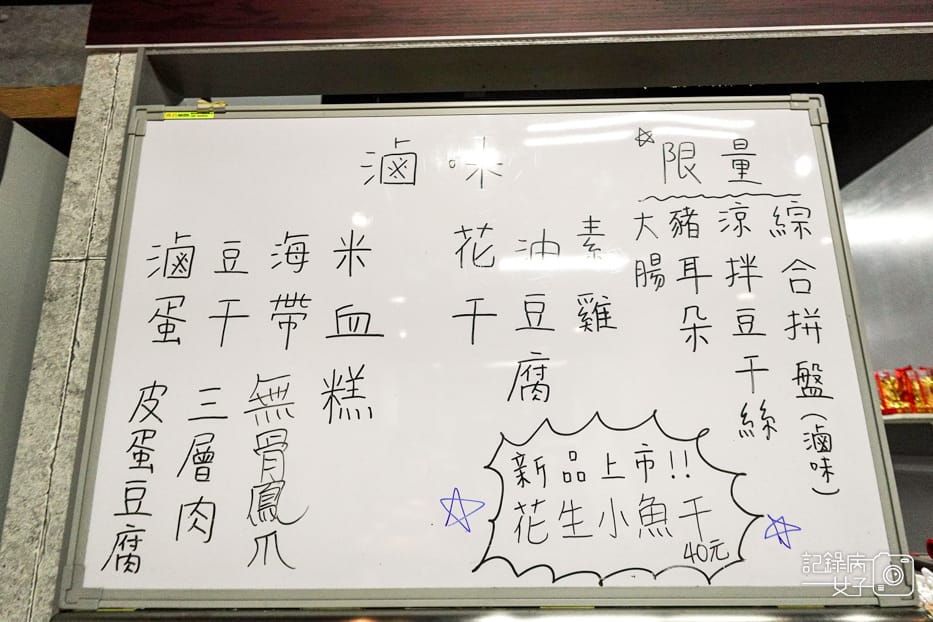 滷味
☆限量
綜合拼盤(滷味)
涼拌豆干絲
豬耳朵
大腸
素雞
油豆腐
花干
米血糕
海帶
豆干
滷蛋
無骨鳳爪
三層肉
皮蛋豆腐
新品上市!!
花生小魚干
40元
記錄病女子